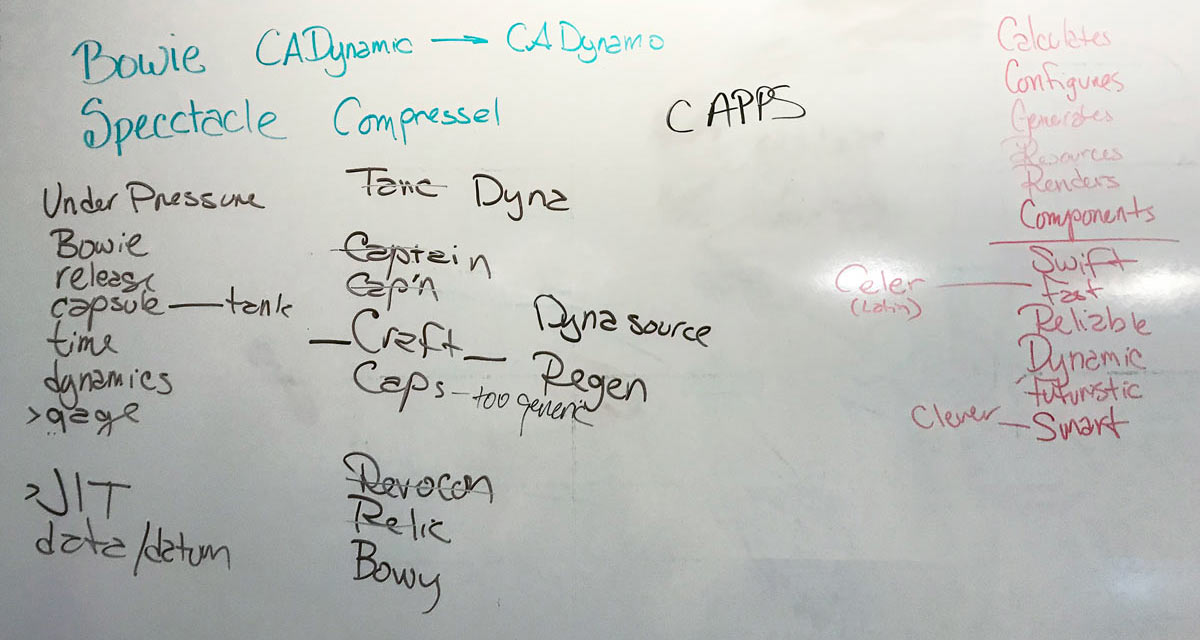 Bowie CADynamic → CADynamo
Specctacle Compressel
CAPPS
Under Pressure
Bowie
release
capsule — tank
time
dynamics
>gage
>JIT
data/datum
Tanc Dyna
Captain
Cap'n
—Craft—
Caps - too generic
Dynasource
Regen
Revocon
Relic
Bowy
Calculates
Configures
Generates
Resources
Renders
Components
Swift
Celer — fast
(Latin)
Reliable
Dynamic
futuristic
Clever — Smart